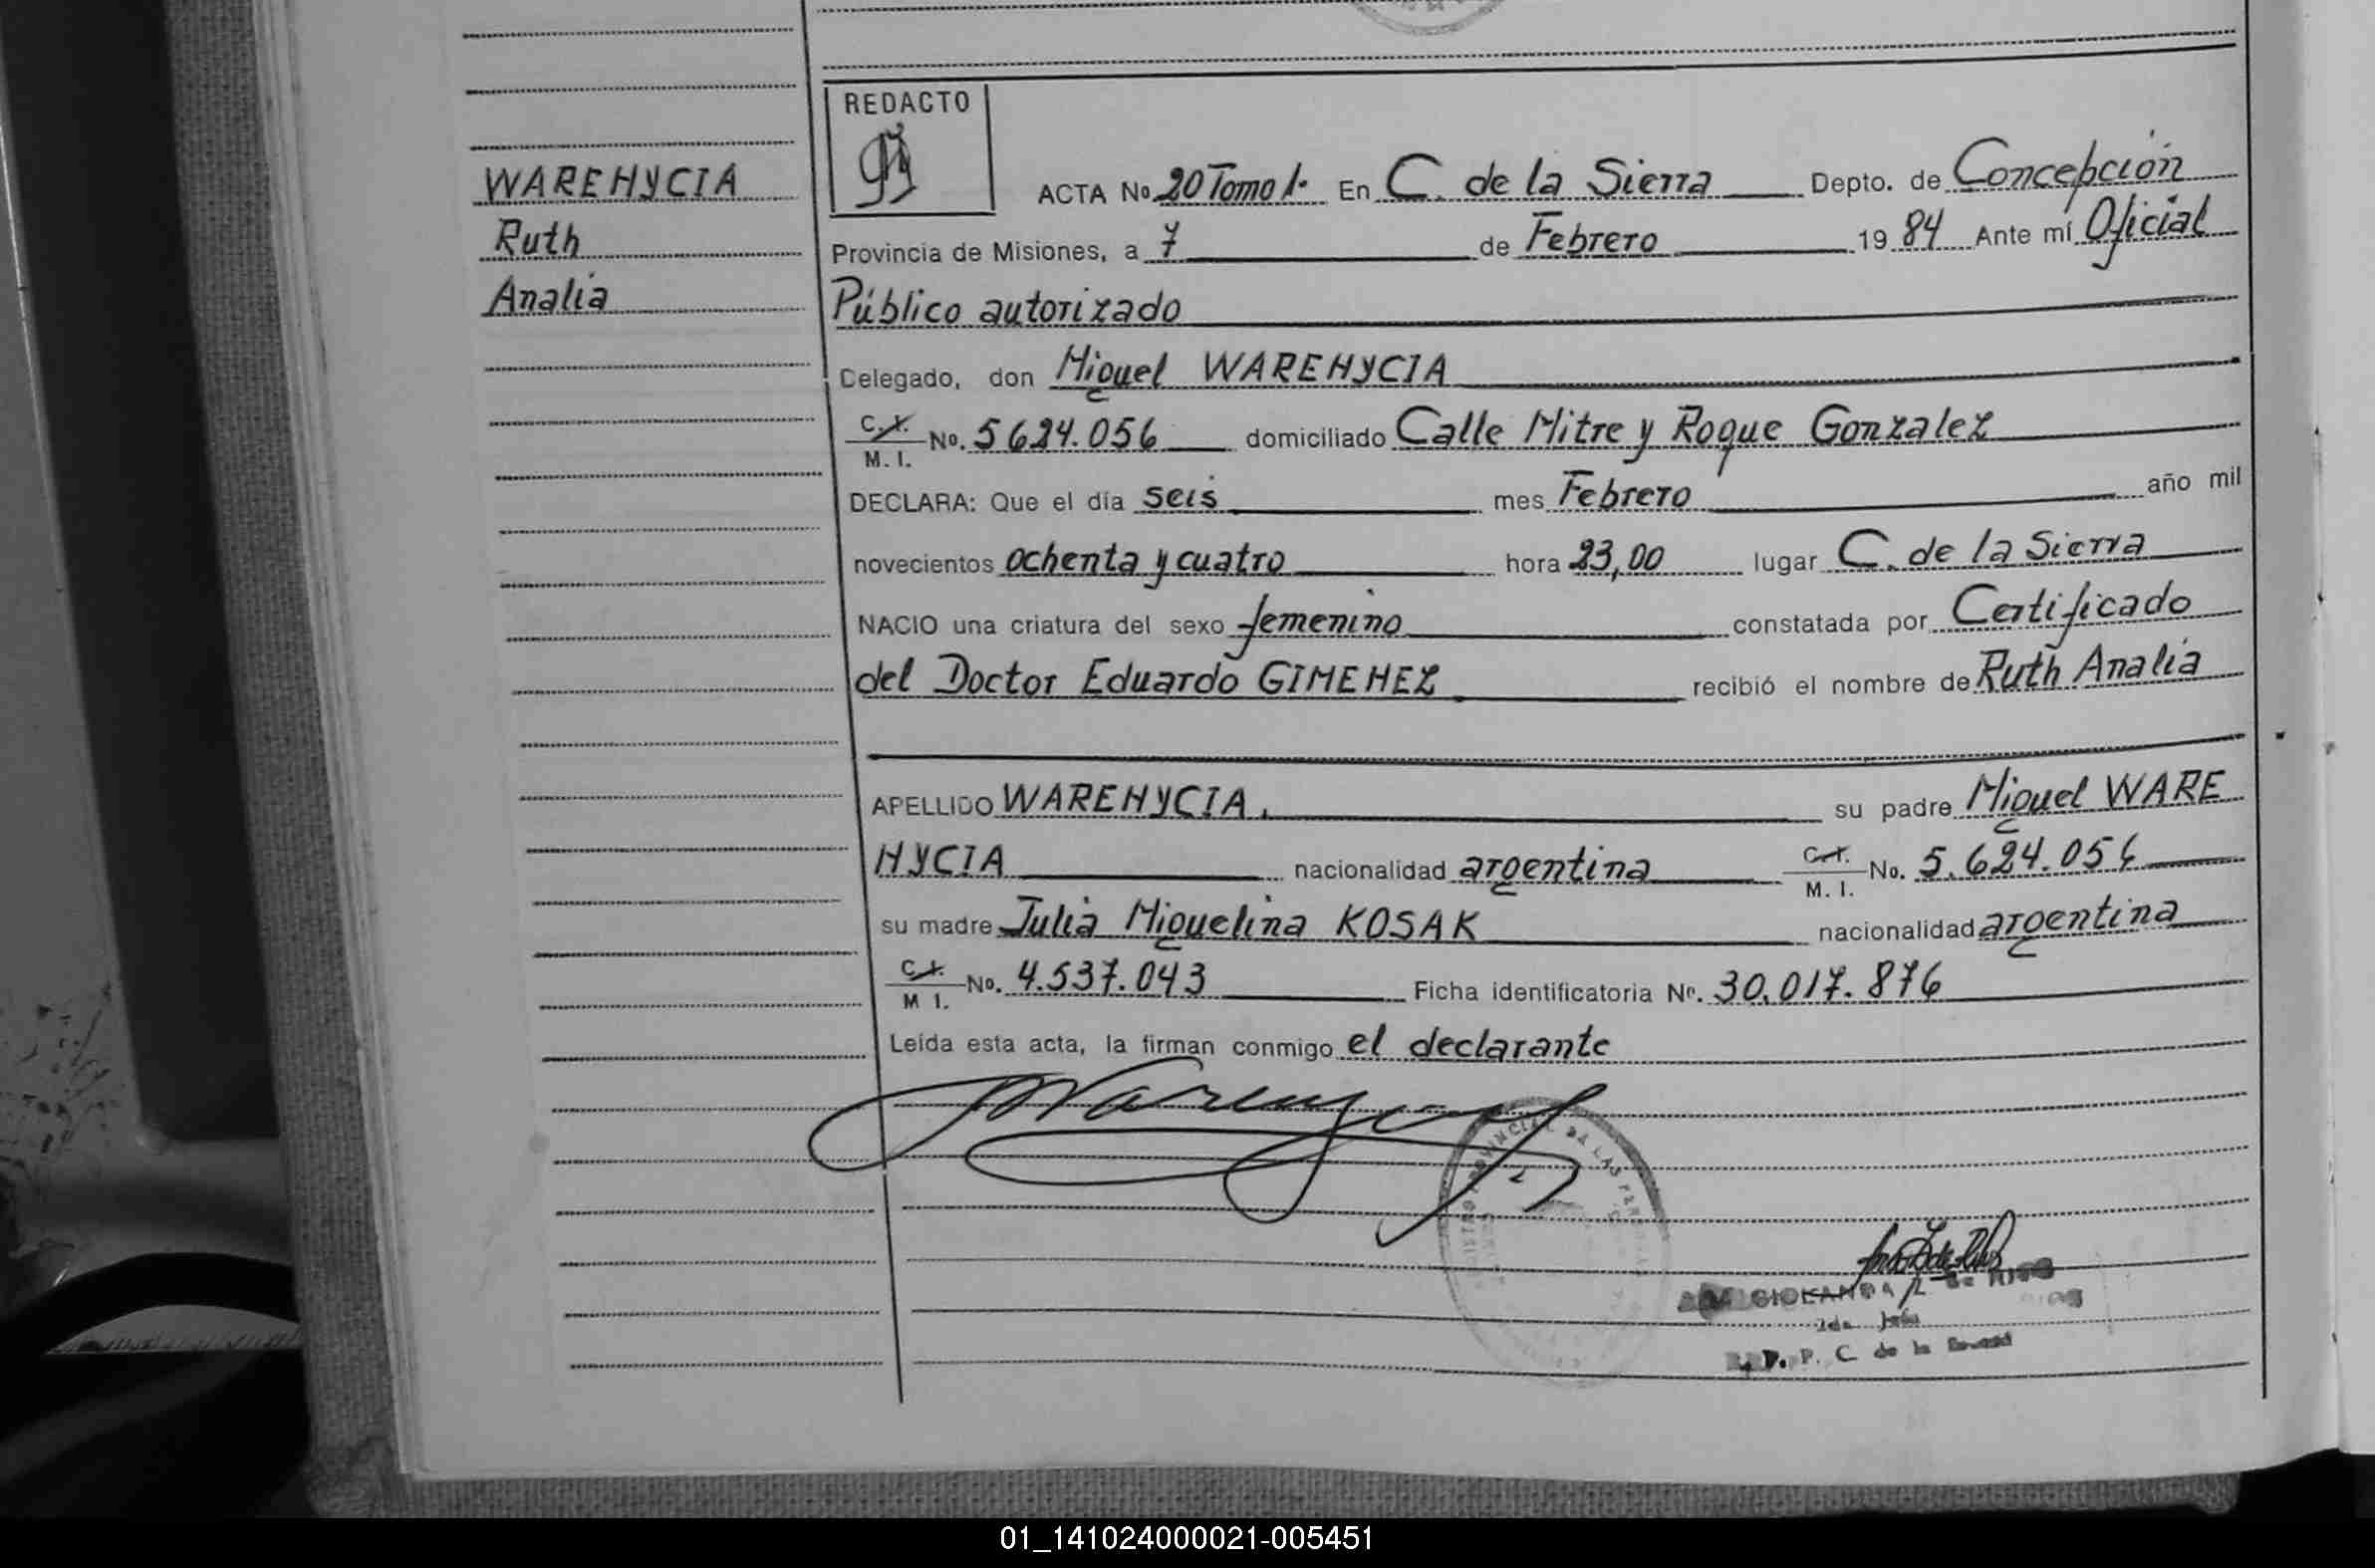 REDACTO
WAREHYCIA
Ruth
Analia
ACTA No 20 Tomo 1· En C. de la Sierra Depto. de Concepción
Provincia de Misiones, a 7 de Febrero 19 84 Ante mí Oficial
Público autorizado
Delegado, don Miguel WAREHYCIA
C.I. M.I. No. 5624.056 domiciliado Calle Mitre y Roque Gonzalez
DECLARA: Que el día seis mes Febrero año mil
novecientos ochenta y cuatro hora 23,00 lugar C. de la Sierra
NACIO una criatura del sexo femenino constatada por Certificado
del Doctor Eduardo GIMEHEZ recibió el nombre de Ruth Analia
APELLIDO WAREHYCIA. su padre Miguel WARE
HYCIA nacionalidad argentina C.I. M.I. No. 5.624.056
su madre Julia Miguelina KOSAK nacionalidad argentina
C.I. M I. No. 4.537.043 Ficha identificatoria No. 30.017.876
Leída esta acta, la firman conmigo el declarante
P. C. de la
01_141024000021-005451